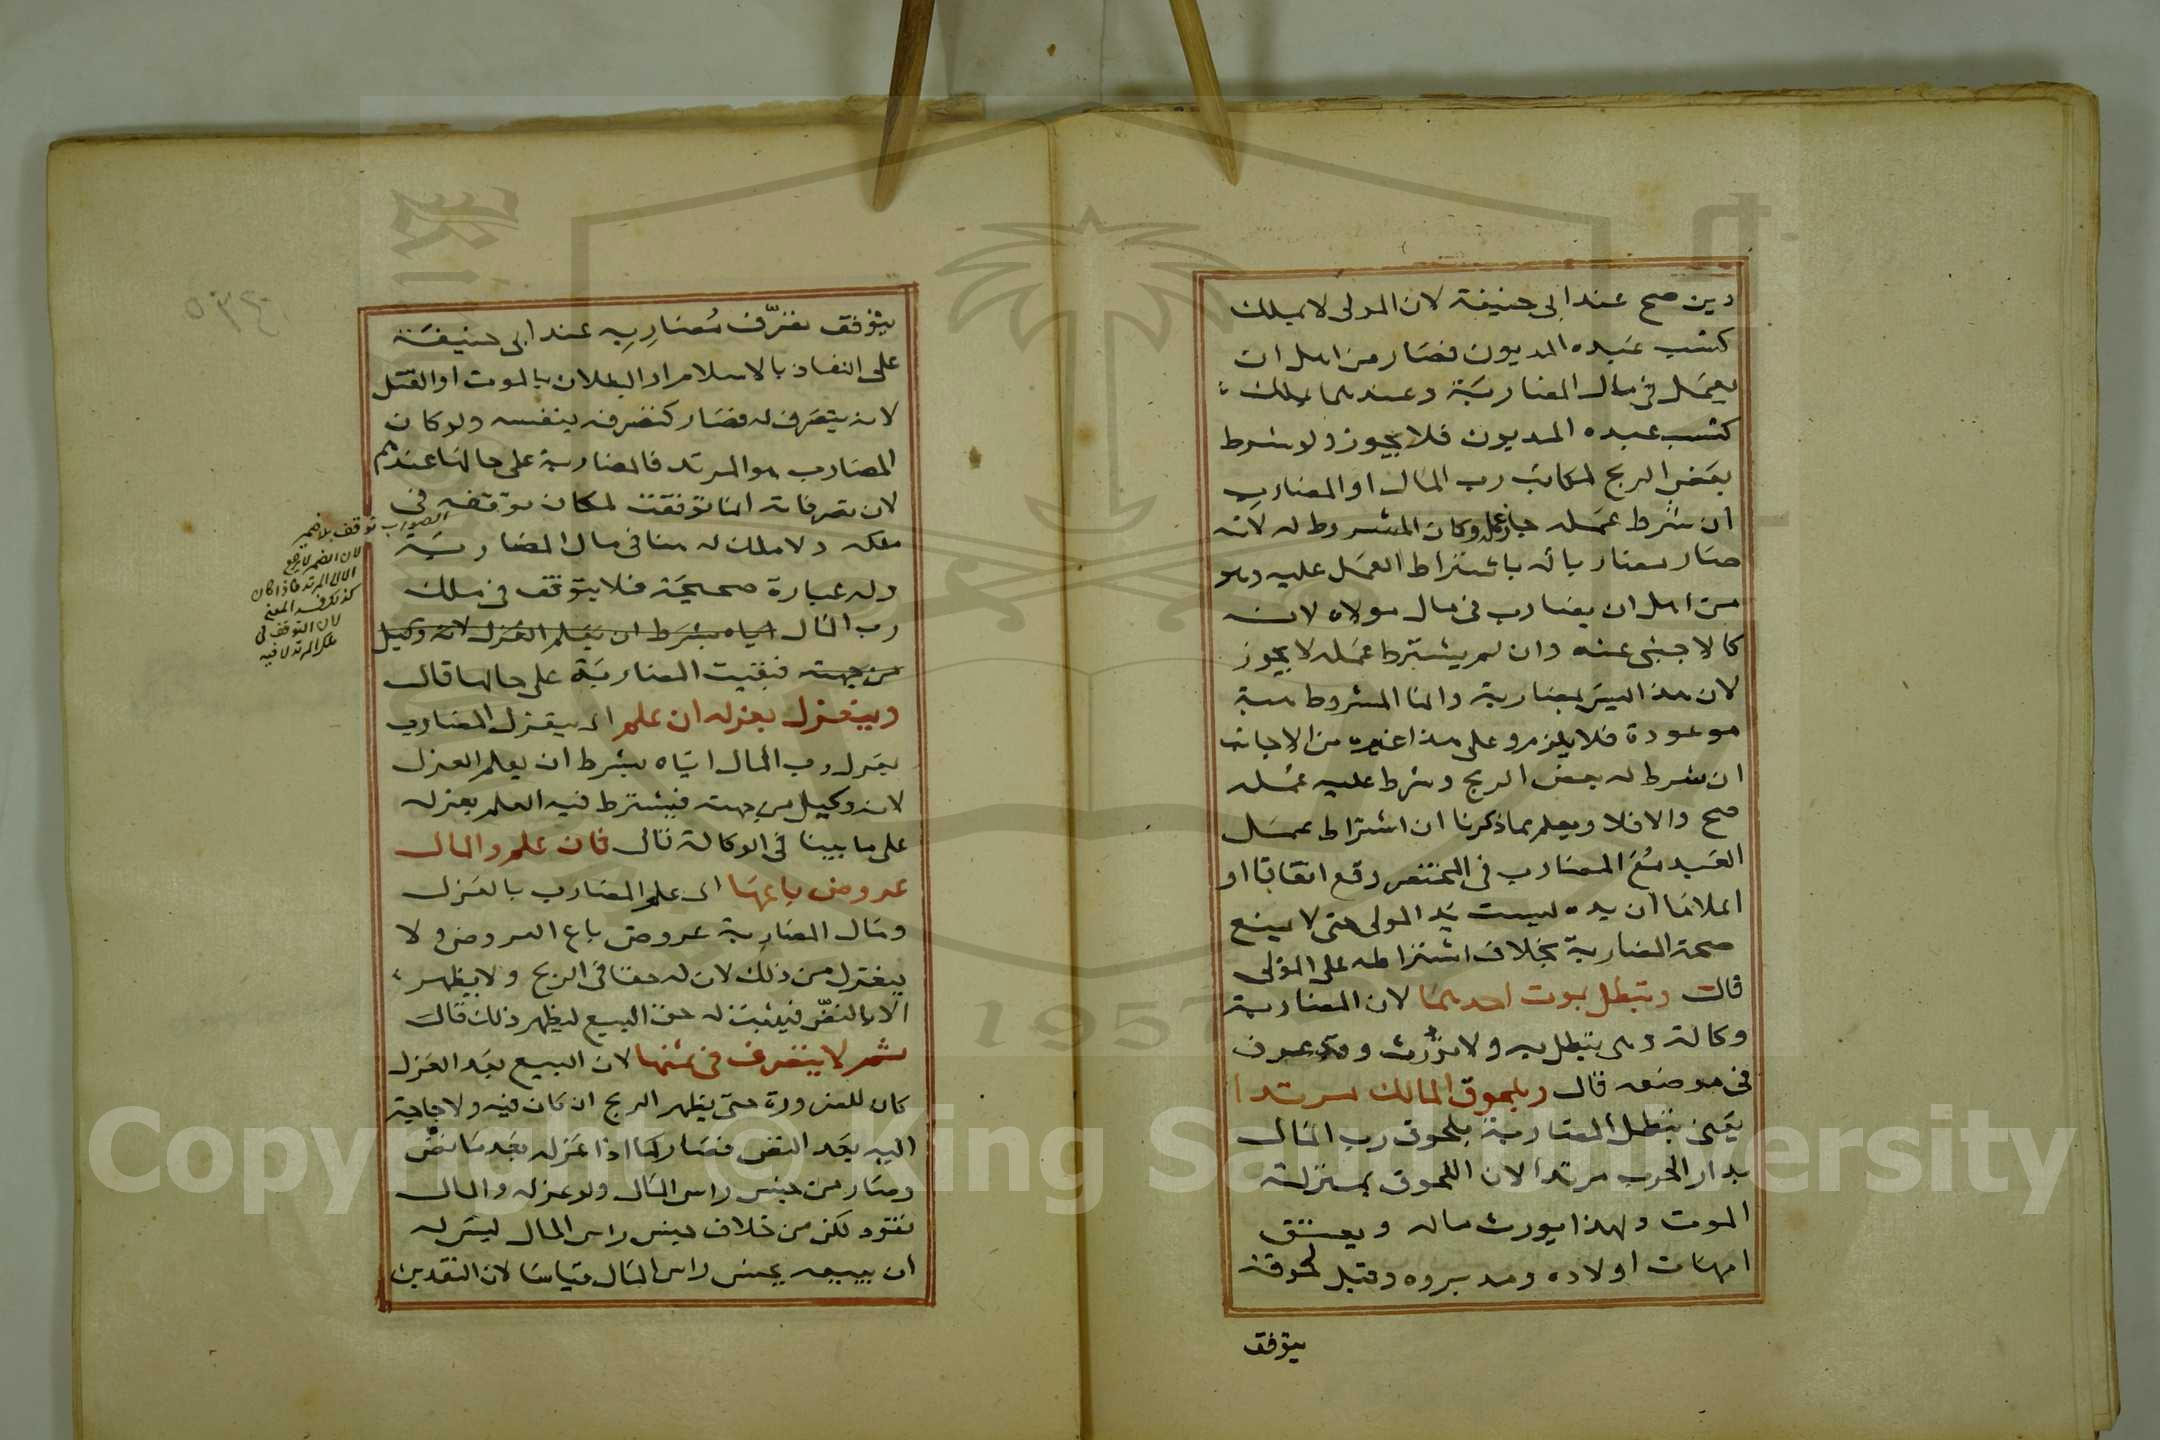 دين صح عند ابى حنيفة لان المولى لا يملك
كسب عبده المديون فصار من اهل ان
يعمل فى مال المضاربة وعندهما يملك
كسب عبده المديون فلا يجوز ولو شرط
بعض الربح لمكاتب رب المال او المضارب
ان شرط عمله جاز وكان المشروط له لانه
صار مضاربا له باشتراط العمل عليه وهو
من اهل ان يضارب فى مال مولاه لانه
كالاجنبى عنه وان لم يشترط عمله لا يجوز
لان هذا ليس بمضاربة وانما المشروط هبة
موعودة فلا يلزم وعلى هذا غيره من الاجانب
ان شرط له بعض الربح وشرط عليه عمله
صح والا فلا ويعلم بما ذكرنا ان اشتراط عمل
العبد مع المضارب فى المختصر وقع اتفاقا او
اعلاما ان يده ليست يد المولى حتى لا يمنع
صحة المضاربة بخلاف اشتراطه على المولى
قال وتبطل بموت احدهما لان المضاربة
وكالة وهى تبطل به ولا تورث وقد عرف
فى موضعه قال وبلحوق المالك مرتدا
يعنى تبطل المضاربة بلحوق رب المال
بدار الحرب مرتدا لان اللحوق بمنزلة
الموت ولهذا يورث ماله ويعتق
امهات اولاده ومدبروه وقبل لحوقه
يتوقف
يتوقف تصرف مضاربه عند ابى حنيفة
على النفاذ بالاسلام او البطلان بالموت او القتل
لانه يتصرف له فصار كتصرفه بنفسه ولو كان
المضارب هو المرتد فالمضاربة على حالها عندهم
لان تصرفاته انما توقفت لمكان توقفه فى
ملكه ولا ملك له هنا فى مال المضاربة
وله عبارة صحيحة فلا يتوقف فى ملك
رب المال اياه بشرط ان يعلم العزل لانه وكيل
من جهته فبقيت المضاربة على حالها قال
وينعزل بعزله ان علم اى ينعزل المضارب
بعزل رب المال اياه بشرط ان يعلم العزل
لانه وكيل من جهته فيشترط فيه العلم بعزله
على ما بينا فى الوكالة قال فان علم والمال
عروض باعها اى علم المضارب بالعزل
ومال المضاربة عروض باع العروض ولا
ينعزل من ذلك لان له حقا فى الربح ولا يظهر
الا بالنض فيثبت له حق البيع ليظهر ذلك قال
ثم لا يتصرف فى ثمنها لان البيع بعد العزل
كان للضرورة حتى يظهر الربح ان كان فيه ولا حاجة
اليه بعد النض فصار كما اذا عزله بعد ما نض
وصار من جنس راس المال ولو عزله والمال
نقود لكن من خلاف جنس راس المال ليس له
ان يبيعه بجنس راس المال قياسا لان النقدين
الصواب توقف بلا ضمير
لان الضمير لا يرجع
الا الى المرتد فاذا كان
كذلك فسد المعنى
لان التوقف فى
ملك المرتد لا فيه
Copyright © King Saud University
1957